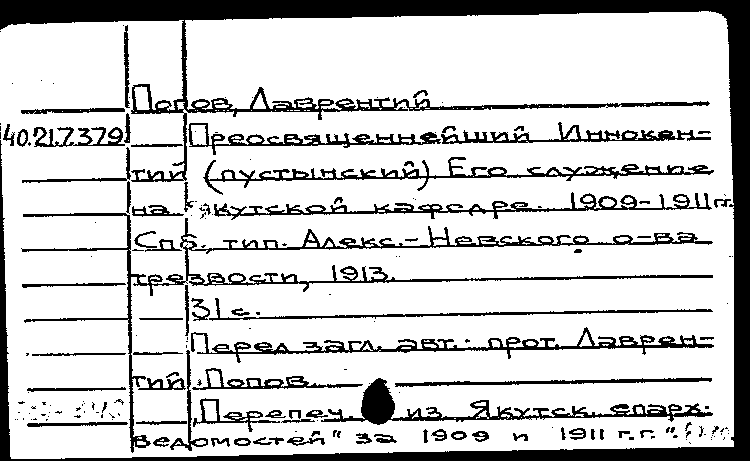 Попов, Лаврентий
40.21.7.379 Преосвященнейший Иннокен-
тий (пустынский) Его служение
на якутской кафедре. 1909-1911гг.
Спб., тип. Алекс.-Невского о-ва
трезвости, 1913.
31 с.
Перед загл. авт.: прот. Лаврен-
тий Попов.
"Перепеч. из Якутск. епарх.
ведомостей" за 1909 и 1911 г.г."